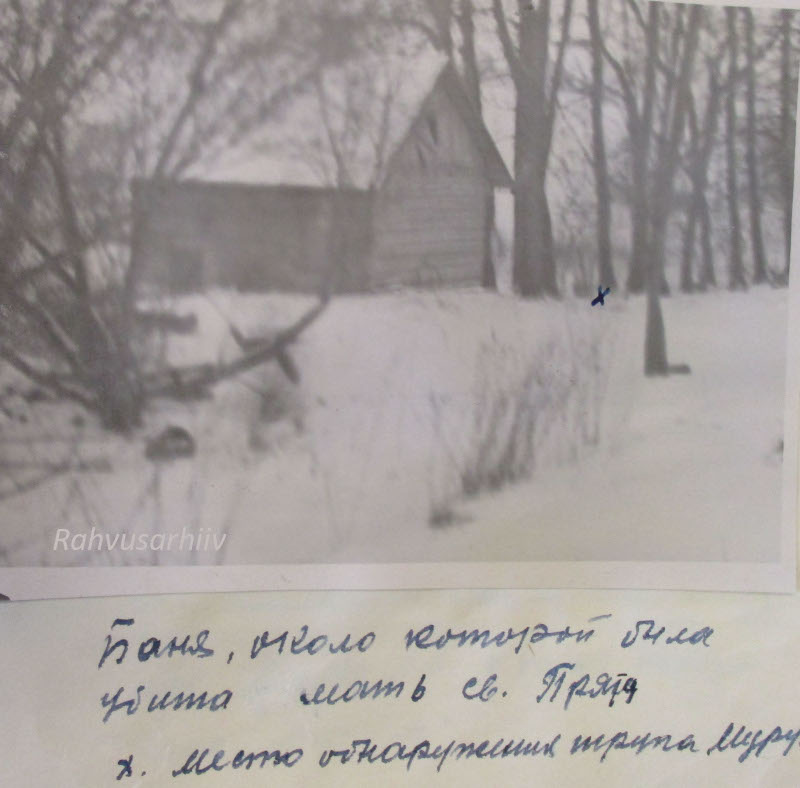 x
Rahvusarhiiv
Баня, около которой была
убита мать св. Пряда
х. Место обнаружения трупа Муру